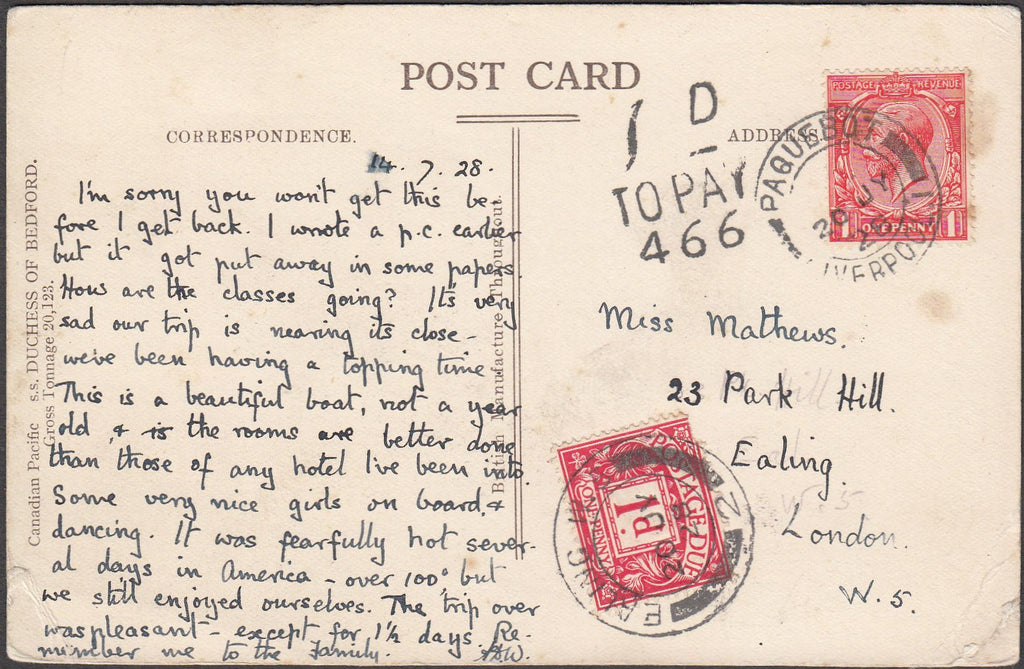 POST CARD
CORRESPONDENCE.
ADDRESS.
Canadian Pacific s.s. DUCHESS OF BEDFORD.
Gross Tonnage 20,123.
British Manufacture Throughout.
14.7.28.
I'm sorry you won't get this be-
fore I get back. I wrote a p.c. earlier
but it got put away in some papers.
How are the classes going? It's very
sad our trip is nearing its close -
we've been having a topping time.
This is a beautiful boat, not a year
old, & is the rooms are better done
than those of any hotel I've been into.
Some very nice girls on board, &
dancing. It was fearfully hot sever-
al days in America - over 100° but
we still enjoyed ourselves. The trip over
was pleasant - except for 1½ days. Re-
member me to the family.
1D
TO PAY
466
POSTAGE REVENUE
ONE PENNY
1 1
PAQUEBOT
20 JY
28
LIVERPOOL
Miss Mathews.
23 Park Hill.
Ealing.
London.
W.5.
POSTAGE DUE
1D
ONE PENNY
EALING
W.5